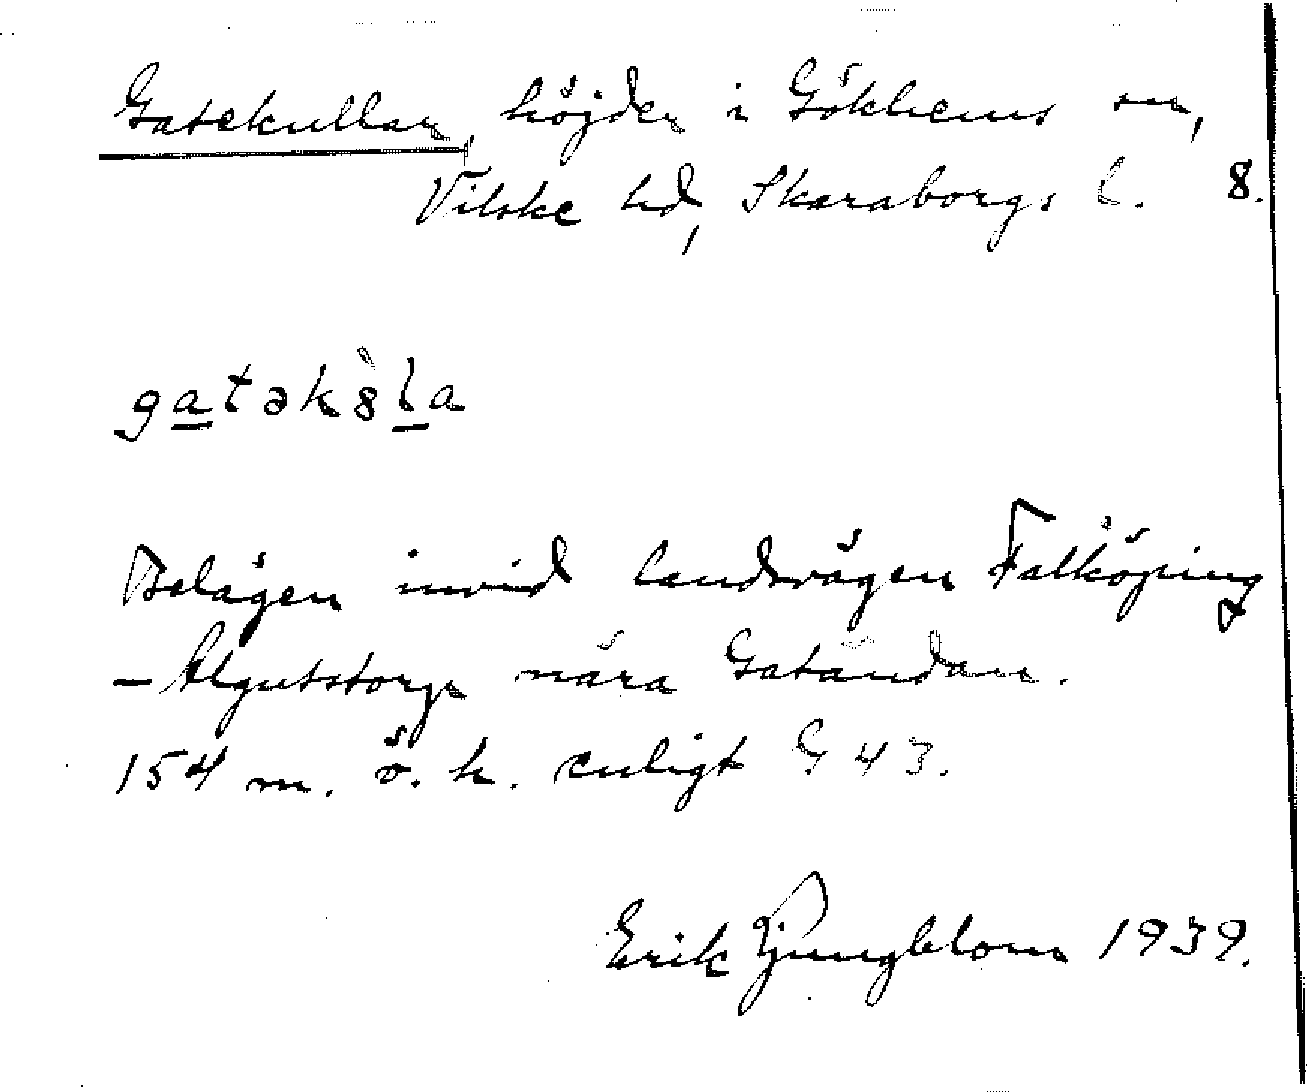 Gatekullar, höjder i Gökhems sn,
Vilske hd, Skaraborgs l. 8.
gatək8̀la
Belägen invid landsvägen Falköping
– Ålgutstorp nära Gatändan.
154 m. ö. h. enligt G 43.
Erik Ljungblom 1939.